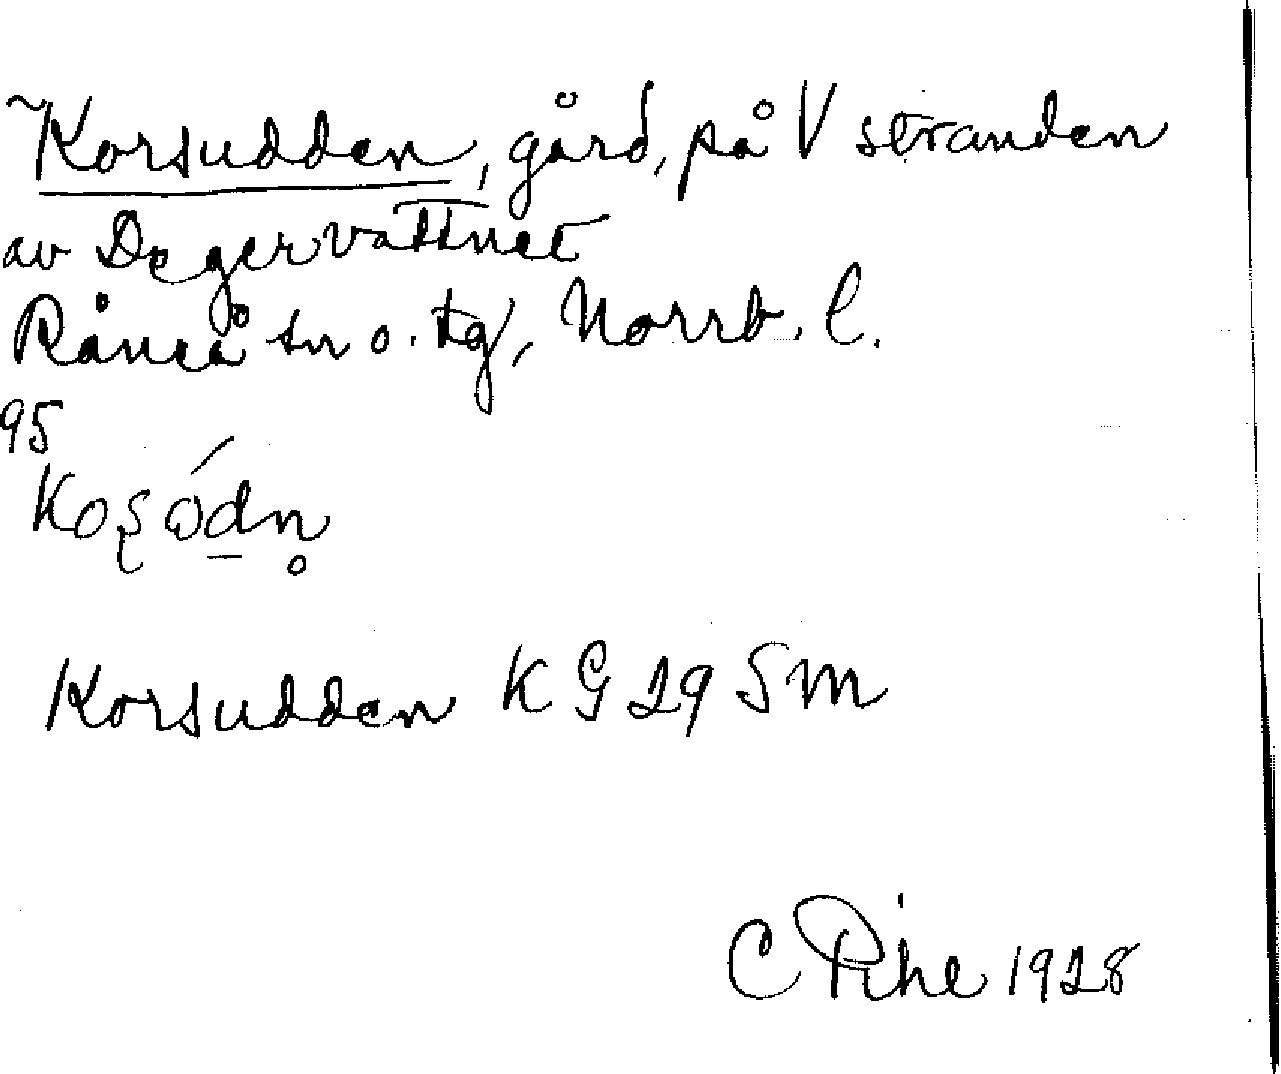 ~Korsudden, gård, på V stranden
av Degervattnet
Råneå sn o. tg, Norrb. l.
95
Korsudden K G 29 Sm
C Pihl 1928